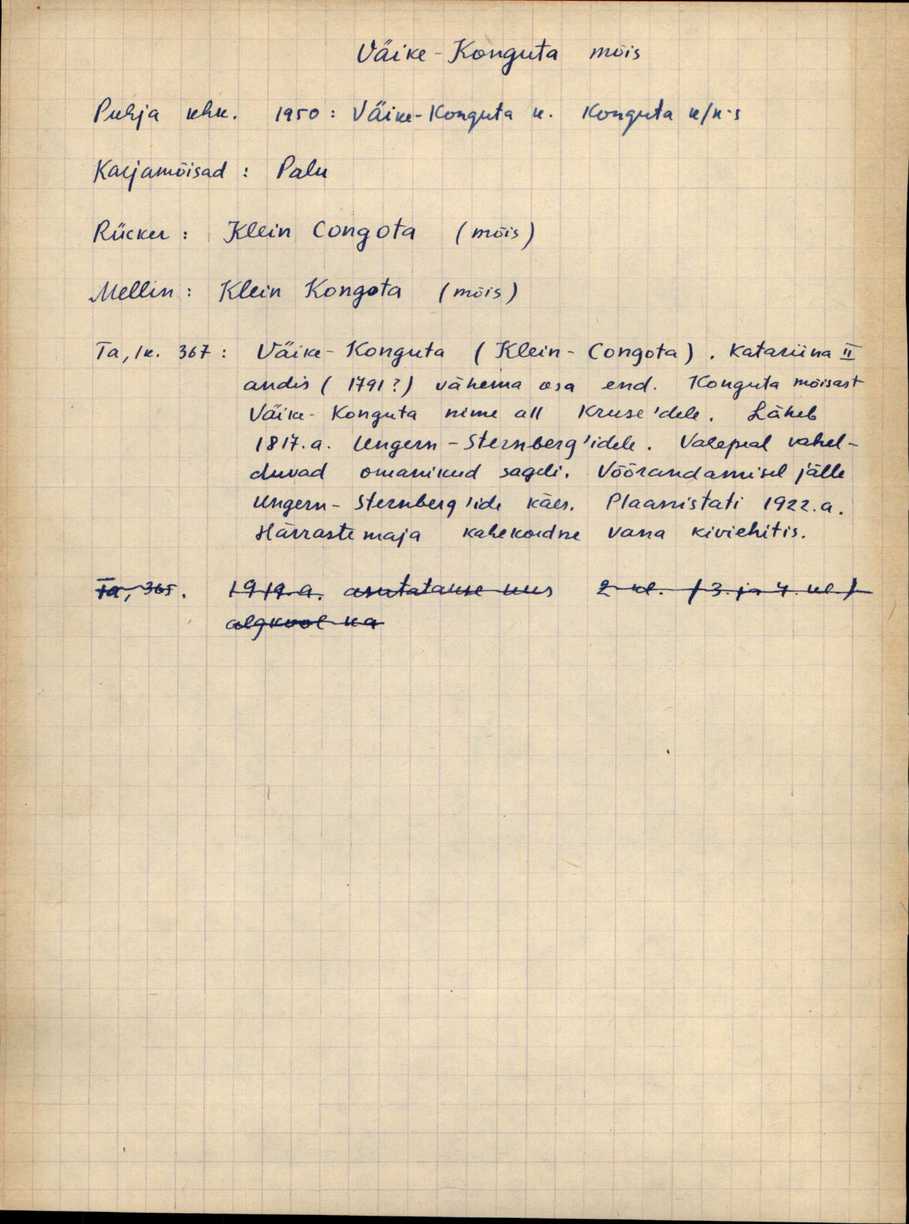 Väike-Konguta mõis
Puhja khk. 1950: Väike-Konguta k. Konguta k/n-s
Karjamõisad: Palu
Rücker: Klein Congota (mõis)
Mellin: Klein Kongota (mõis)
Ta, lk. 367: Väike-Konguta (Klein-Congota). Katariina II
andis (1791?) vähema osa end. Konguta mõisast
Väike-Konguta nime all Kruse'dele. Läheb
1817.a. Ungern-Sternberg'idele. Valepeal vahel-
duvad omanikud sageli. Võõrandamisel jälle
Ungern-Sternberg'ide käes. Plaanistati 1922.a.
Härrastemaja kahekordne vana kiviehitis.
Ta, 365. 1919.a. asutatakse uus 2 kl. (3. ja 4. kl.)
algkool ka